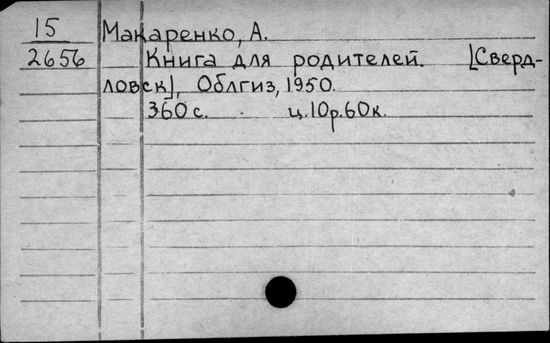 15 Макаренко, А.
2656 Книга для родителей. [Сверд-
ловск], Облгиз, 1950.
360 с. ц.10р.60к.